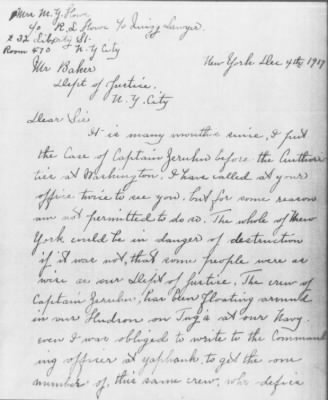 Mrs M. Y. Howe
c/o R. L. Howe c/o Lawyer.
# 32 Liberty St.
Room 470 N. Y City
New York Dec 4th 1917
Mr Baker
Dept of Justice.
N. Y. City
Dear Sir
It is many months since, I put
the Case of Captain Zeruhn before the Authori
ties at Washington. I have called at your
office twice to see you, but for some reason
am not permitted to do so. The whole of New
York could be in danger of destruction
if it was not, that some people were as
wise as our Dept of Justice. The crew of
Captain Zeruhn, has been floating around
in our Hudson on Tug's at our Navy.
even I was obliged to write to the Command
ing officer at yaphank, to get the one
number of, this same crew, who